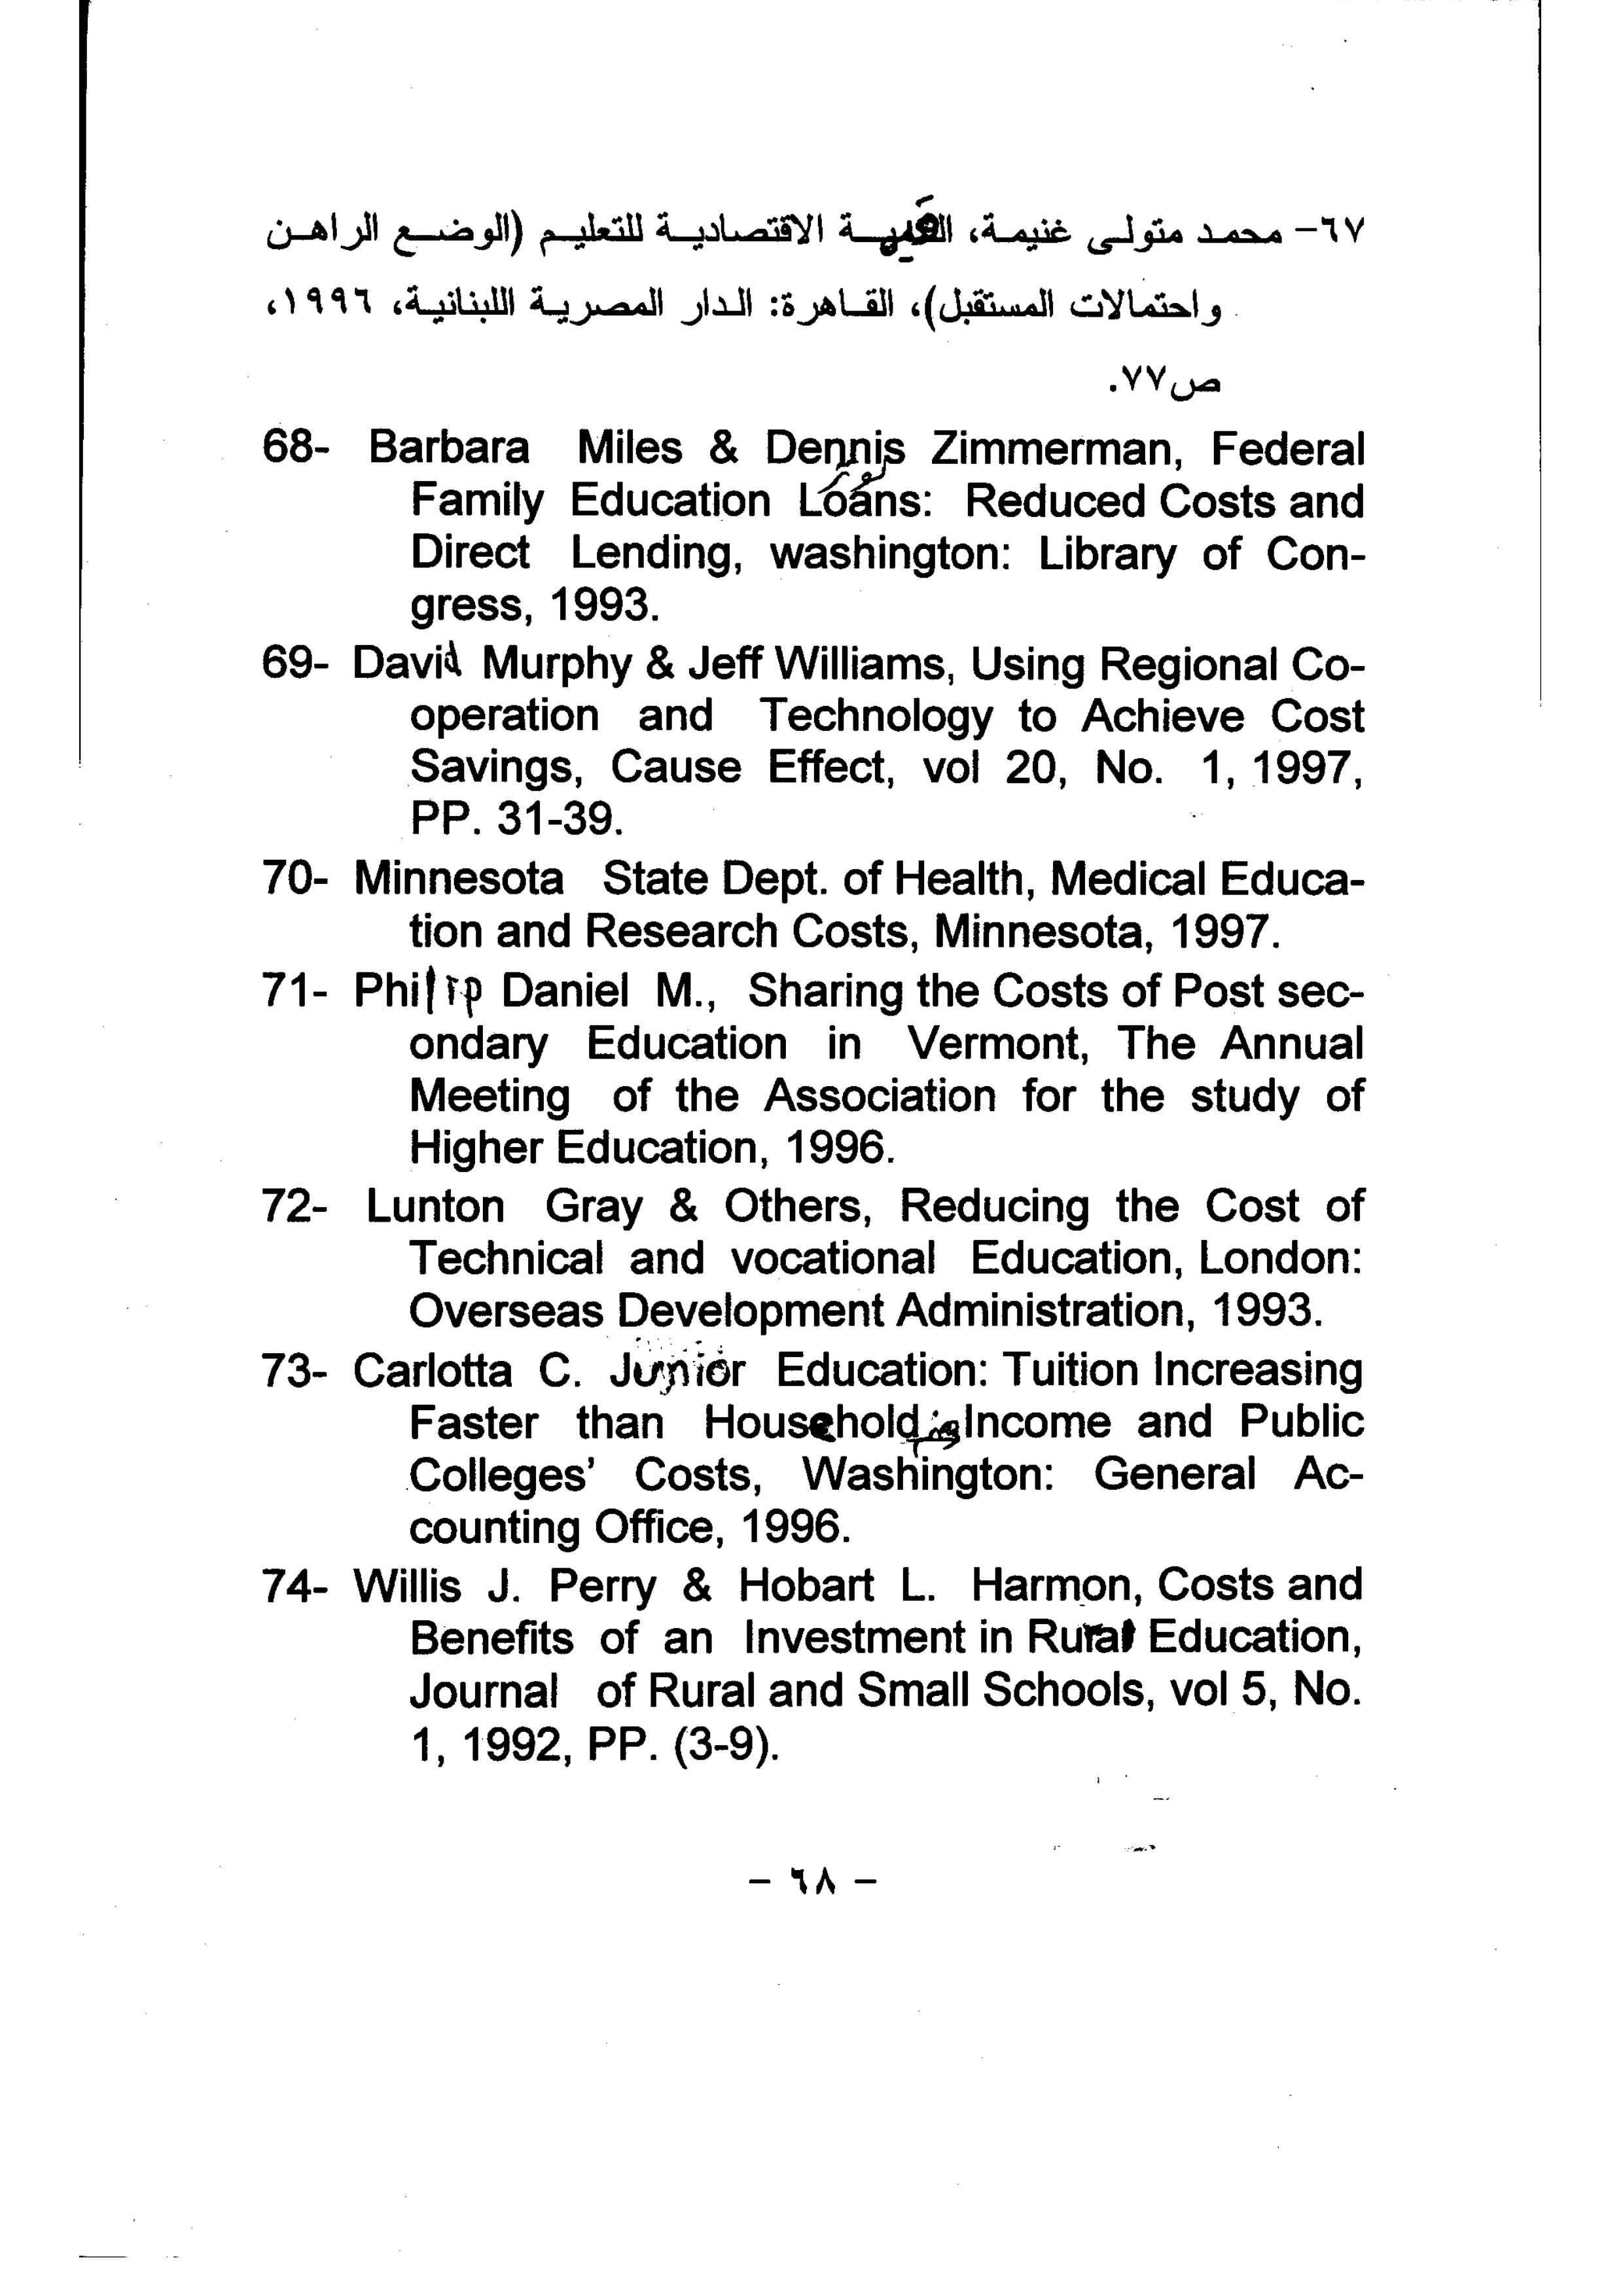 ٦٧- محمد متولى غنيمة، القيمة الاقتصادية للتعليم (الوضع الراهن
واحتمالات المستقبل)، القاهرة: الدار المصرية اللبنانية، ١٩٩٦،
ص٧٧.
68- Barbara Miles & Dennis Zimmerman, Federal
Family Education Loans: Reduced Costs and
Direct Lending, washington: Library of Con-
gress, 1993.
69- David Murphy & Jeff Williams, Using Regional Co-
operation and Technology to Achieve Cost
Savings, Cause Effect, vol 20, No. 1, 1997,
PP. 31-39.
70- Minnesota State Dept. of Health, Medical Educa-
tion and Research Costs, Minnesota, 1997.
71- Philip Daniel M., Sharing the Costs of Post sec-
ondary Education in Vermont, The Annual
Meeting of the Association for the study of
Higher Education, 1996.
72- Lunton Gray & Others, Reducing the Cost of
Technical and vocational Education, London:
Overseas Development Administration, 1993.
73- Carlotta C. Junior Education: Tuition Increasing
Faster than Household Income and Public
Colleges' Costs, Washington: General Ac-
counting Office, 1996.
74- Willis J. Perry & Hobart L. Harmon, Costs and
Benefits of an Investment in Rural Education,
Journal of Rural and Small Schools, vol 5, No.
1, 1992, PP. (3-9).
- ٦٨ -